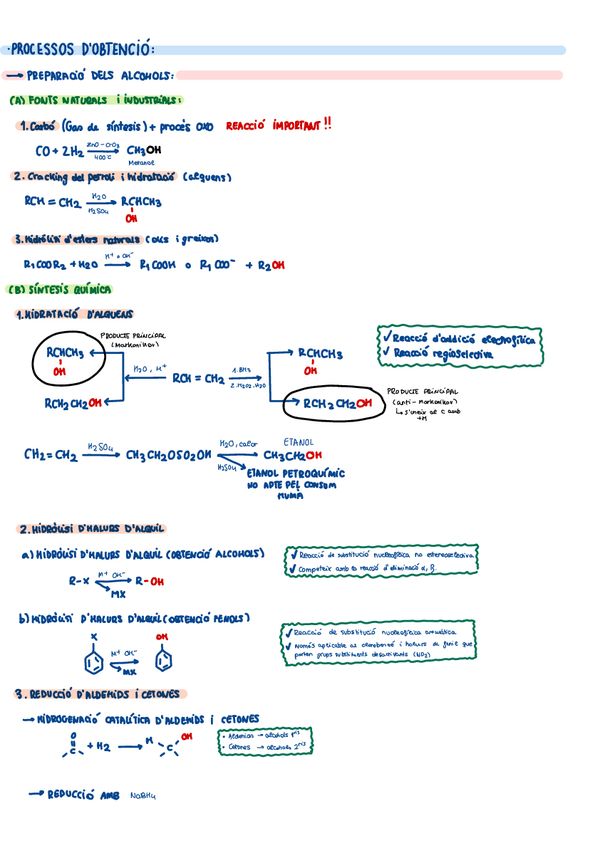 ·PROCESSOS D'OBTENCIÓ:
→ PREPARACIÓ DELS ALCOHOLS:
(A) FONTS NATURALS i INDUSTRIALS:
1. Carbó (Gas de síntesi) + procés OXO REACCIÓ IMPORTANT!!
CO + 2H2 ZnO - CrO3 400°C → CH3OH
Metanol
2. Cracking del petroli i hidratació (alquens)
RCH = CH2 H2O H2SO4 → RCHCH3
OH
3. Hidròlisi d'esters naturals (olis i greixos)
R1COOR2 + H2O H+ o OH- → R1COOH o R1COO- + R2OH
(B) SÍNTESIS QUÍMICA
1. HIDRATACIÓ D'ALQUENS
PRODUCTE PRINCIPAL
(Markonikov)
✓ Reacció d'addició electrofílica
✓ Reacció regioselectiva
RCHCH3
OH
H2O, H+
RCH = CH2
1. BH3
2. H2O2, H2O
RCHCH3
OH
RCH2CH2OH
RCH2CH2OH
PRODUCTE PRINCIPAL
(anti-Markonikov)
↳ s'uneix al C amb
+H
CH2=CH2 H2SO4 → CH3CH2OSO2OH H2O, calor → CH3CH2OH
ETANOL
H2SO4
ETANOL PETROQUÍMIC
NO APTE PEL CONSUM
HUMÀ
2. HIDRÒLISI D'HALURS D'ALQUIL
a) HIDRÒLISI D'HALURS D'ALQUIL (OBTENCIÓ ALCOHOLS)
✓ Reacció de substitució nucleofílica no estereoselectiva.
✓ Competeix amb la reacció d'eliminació α, β.
R-X M+ OH- → R-OH
MX
b) HIDRÒLISI D'HALURS D'ALQUIL (OBTENCIÓ FENOLS)
✓ Reacció de substitució nucleofílica aromàtica
✓ Només aplicable al clorobenzè i halurs de fenil que
porten grups substituents desactivants (NO2)
X
OH
M+ OH-
MX
3. REDUCCIÓ D'ALDEHIDS I CETONES
→ HIDROGENACIÓ CATALÍTICA D'ALDEHIDS I CETONES
O
C + H2 → H C OH
• Aldehids → alcohols 1ris
• Cetones → alcohols 2ris
→ REDUCCIÓ AMB NaBH4